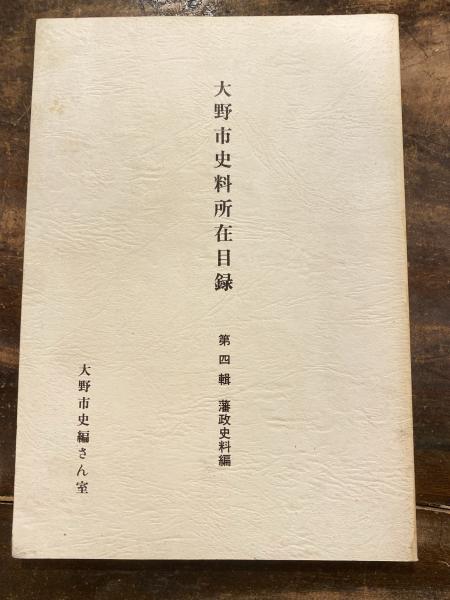 大野市史料所在目録
第四輯 藩政史料編
大野市史編さん室